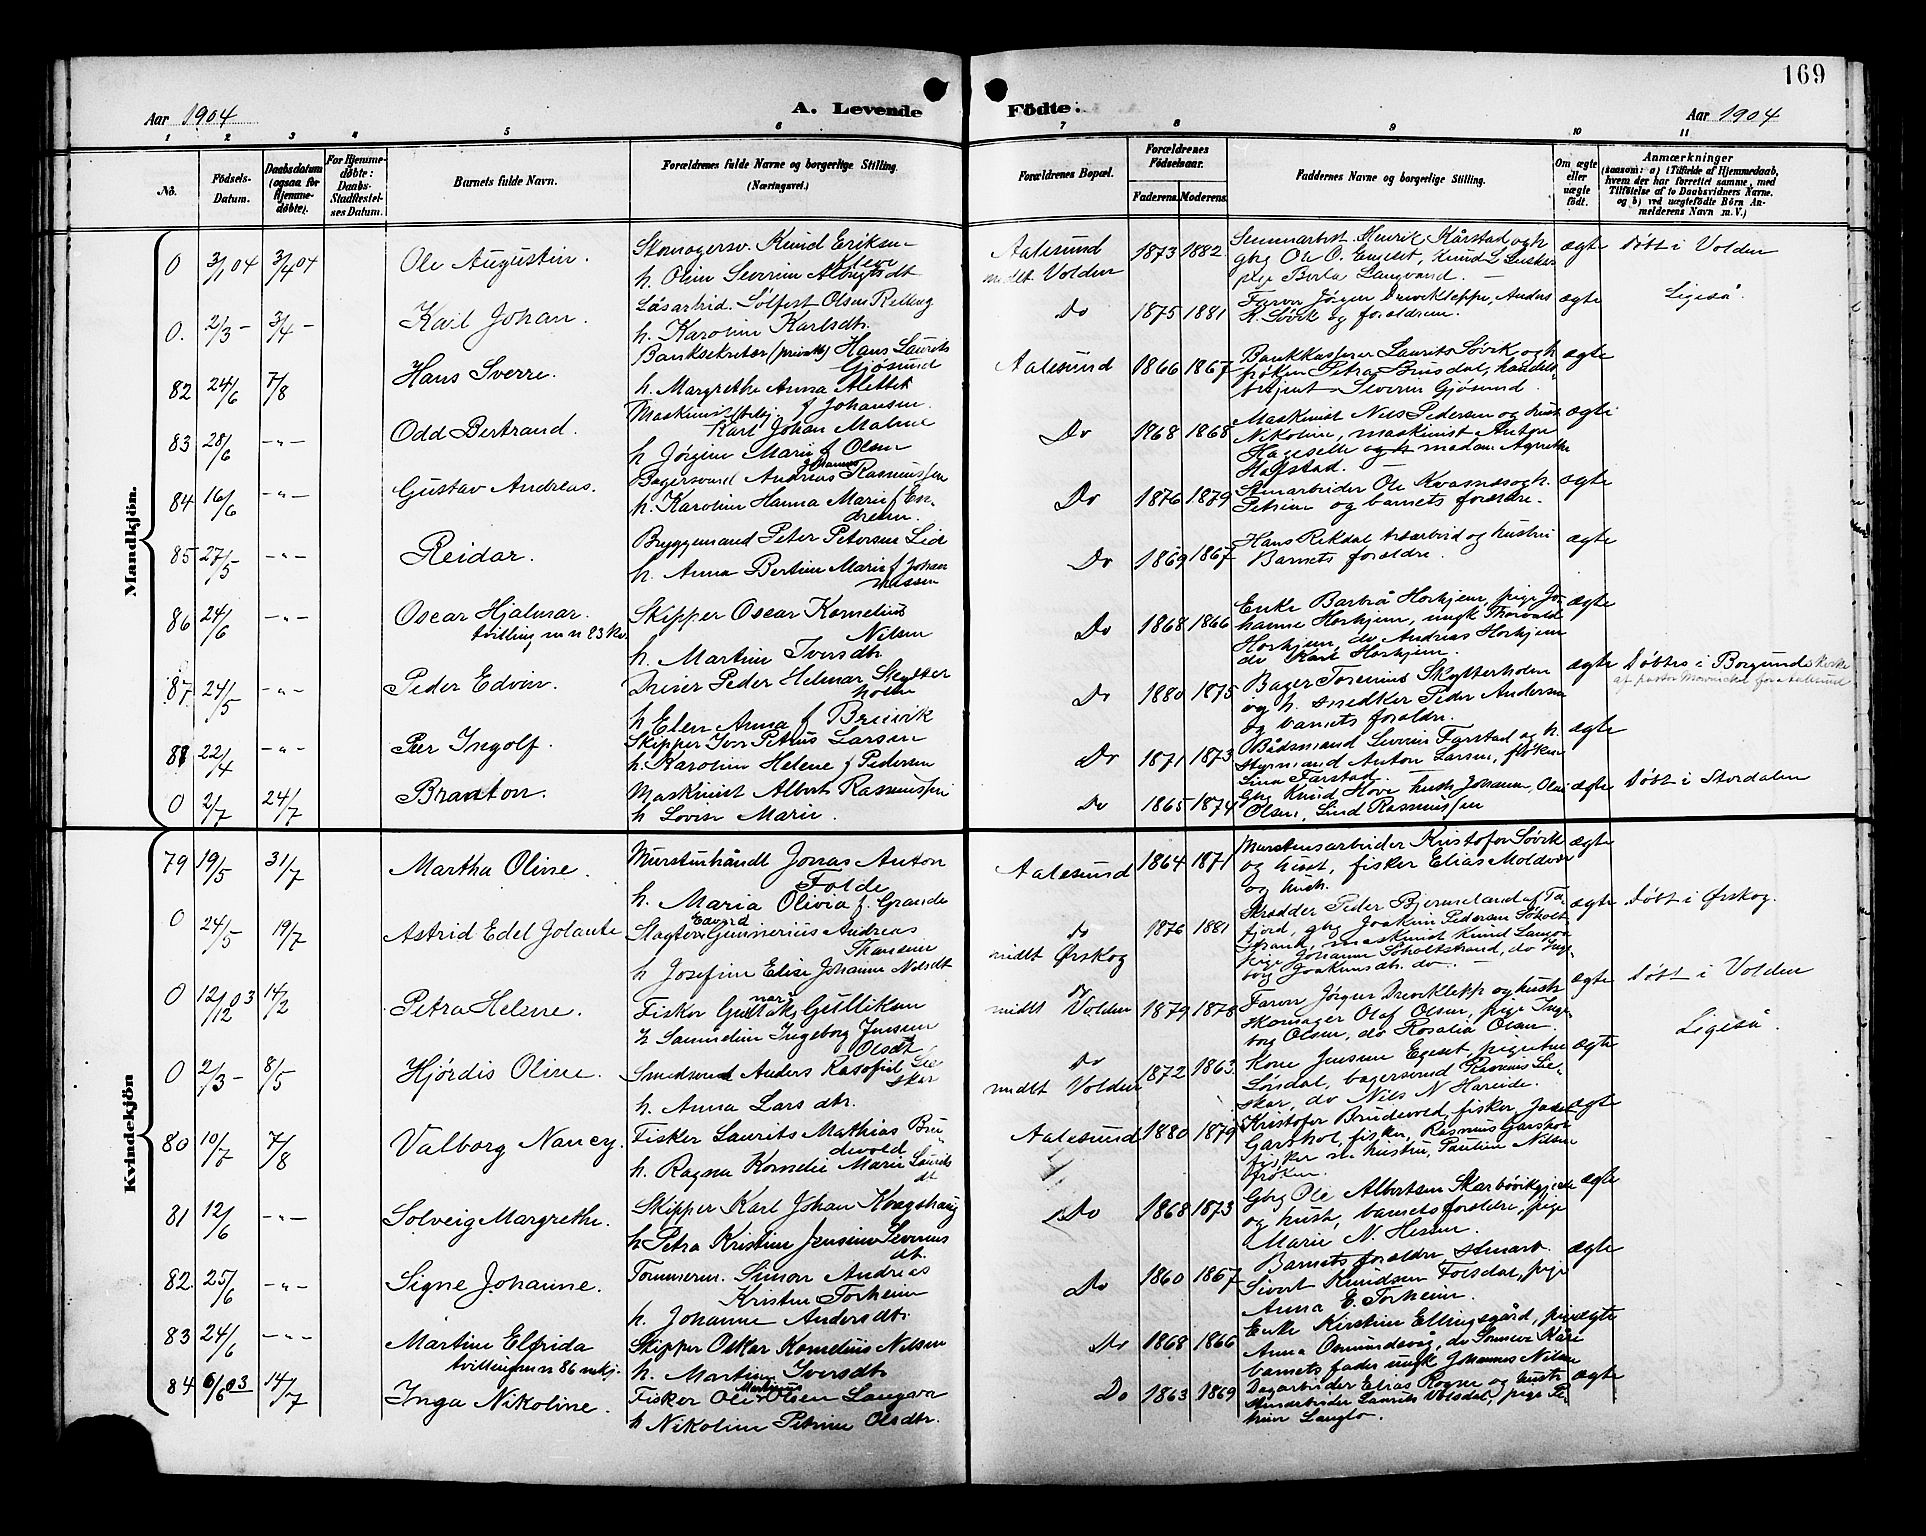 169
Aar 1904
A. Levende
Födte.
Aar 1904
1 2 3 4 5 6 7 8 9 10 11
No.
Födsels-Datum.
Daabsdatum (ogsaa for Hjemme-döbte).
For Hjemme-döbte: Daabs-Stadfæstel-ses Datum.
Barnets fulde Navn.
Forældrenes fulde Navne og borgerlige Stilling.
(Næringsvei.)
Forældrenes Bopæl.
Forældrenes Födselsaar.
Faderens. Moderens.
Faddernes Navne og borgerlige Stilling.
Om ægte eller uægte födt.
Anmærkninger
(saasom: a) i Tilfælde af Hjemmedaab, hvem der har forrettet samme, med Tilföielse af to Daabsvidners Navne, og b) ved uægtefödte Börn An-melderens Navn m. V.)
Mandkjön.
0 3/1 04 3/4 04 Ole Augustin. Skomagersv. Knud Eriksen Kleve
h. Oline Severine Albrigtsdt
Aalesund midt. Volden 1873 1882 Henrik Kårstad og h. gbg Ole O. Engeset, Knud L
pige Berta Langvand. ægte Döbt i Volden
0. 2/3 - 3/4 - Karl Johan. Olsen
h. Karoline Karlsdtr.
Do 1875 1881 Farver Jörgen Drevkleppe, Anders
K. Sövik og forældrene. ægte Ligeså.
82 24/6 7/8 Hans Sverre. Banksekretær (privatb) Hans Laurits Gjösund
h. Margrethe Anna Alettet f Johansen.
Aalesund 1866 1867 Bankkasserer Laurits Sövik og h
fröken Petra Brusdal, handels-
betjent Severin Gjösund. ægte
83 28/6 -"- Odd Bertrand. Maskinist Karl Johan Malme
h Jörgine Marie f Olsen
Do 1868 1868 Maskinist Nils Pedersen og hust
Nikoline, maskinist Anton
Hageselle og h madam Agnethe
Hofstad. ægte
84 16/6 -"- Gustav Andreas. Bagersvend Andreas Johannes Rasmussen
h. Karoline Hanna Marie f En-
dresen.
Do 1876 1879 Stenarbeider Ole Kvasnes og h.
Petrine og barnets forældre. ægte
85 27/5 -"- Reidar. Bryggemand Peter Petersen Lid
h. Anna Bertine Marie f Johan
nessen
Do 1869 1867 Hans Rekdal og hustru
Barnets forældre. ægte
86 24/6 -"- Oscar Hjalmar. Skipper Oscar Kornelius
tvilling m n 83 kv. Nilsen
h. Martine Iversdtr
Do 1868 1866 Enke Barbrå Horhjem, pige Jo
hanne Horhjem, ungk Thorvald
Horhjem, do Andreas Horhjem
do Karl Horhjem. ægte
87 24/5 -"- Peder Edvin. Dreier Peder Helmar Skytter
holm
h Elen Anna f Breivik
Do 1880 1875 Bager Skytterholm
og h. smedker Peder Andersen
og barnets forældre. ægte Döbtes i Borgunds kirke
af pastor for Aalesund
88 22/4 -"- Per Ingolf. Skipper Iver Petrus Larsen
h. Karoline Helene f Pedersen
Do 1871 1873 Bådsmand Severin Farstad og h.
styrmand Anton Larsen, fröken
Lina Farstad. ægte
0 2/7 24/7 Branton. Maskinist Albert Rasmussen
h Lovise Marie.
Do 1865 1874 Gbg Knud Hove hust Johanne, Olai
Olsen, Rasmussen ægte Döbt i Stordalen
Kvindekjön
79 19/5 31/7 Martha Oline. Jonas Anton
Folde
h. Maria Olivia f. Grande
Aalesund 1864 1871 Murstensarbeider Kristofer Sövik
og hust, fisker Elias Moldvær
og hust. ægte
0 24/5 19/7 Astrid Edel Jolante Slagter Edvard Gunnerius Andreas
h Josefine Elise Johanne Nilsdt
do midt Ørskog 1876 1881 Skrædder Peder Bjermeland af Ta-
fjord, gbg Joakim Pedersen Söholt
strand, maskinist Knud
pige Johanne Söholtstrand, do Inge
borg Joakimsdtr. do. ægte Döbt i Ørskog.
0 12/12 03 14/2 Petra Helene. Fisker Gutlik
h Samueline Ingeborg Jensen
Olsdt
do midt Volden 1879 1878 Farver Jörgen Drevklepp og hust
skomager Olaf Olsen, pige Inge
borg Olsen, do Rosalia Olsen. ægte Döbt i Volden
0 2/3 - 8/5 Hjördis Oline. Smedsvend Anders Rasofiel Lie
skar
h. Anna Lars dtr.
do midt Volden 1872 1863 Kone Jensine Egeset, pige Ane
Lövdal, bagersvend Rasmus Lie-
skar, do Nils N Hareide. ægte Ligeså.
80 10/7 7/8 Valborg Nancy. Fisker Laurits Mathias Bru
devold
h. Ragna Kornelie Marie Laurits
dt
Aalesund 1880 1879 Kristofer Brudevold, fisker,
Garshol, fisker, Rasmus Garshol
fisker m. hustru, Pauline Nilsen
fröken. ægte
81 12/6 -"- Solveig Margrethe. Skipper Karl Johan Kongshaug
h Petra Kristine Jensine Severins
dt.
Do 1868 1873 Gbg Ole Albertsen Skarbövik
og hust, barnets forældre, pige
Marie N. Hessen. ægte
82 25/6 -"- Signe Johanne. Tömmerm. Simon Andreas
Kristen Torheim
h. Johanne Andersdtr.
Do 1860 1867 Barnets forældre, stenarb.
Sivert Knudsen Folsdal, pige
Anna E. Torheim. ægte
83 24/6 -"- Martine Elfrida
tvilling m n 86 mkj.
Skipper Oskar Kornelius Nilsen
h. Martine Iversdtr
Do 1868 1866 Enke Kirstine Ellingsgård, pige
Anna Osmundsvåg, do
barnets fader ungk Johannes Nilsen ægte
84 6/6 03 14/7 Inga Nikoline. Fisker Ole Martinus Olsen Langva
h Nikoline Petrine Olsdtr.
Do 1863 1869 Dagarbeider Elias Rogne og hustr
stenarbeider Laurits Volsdal, pige Pe
Langlo. ægte